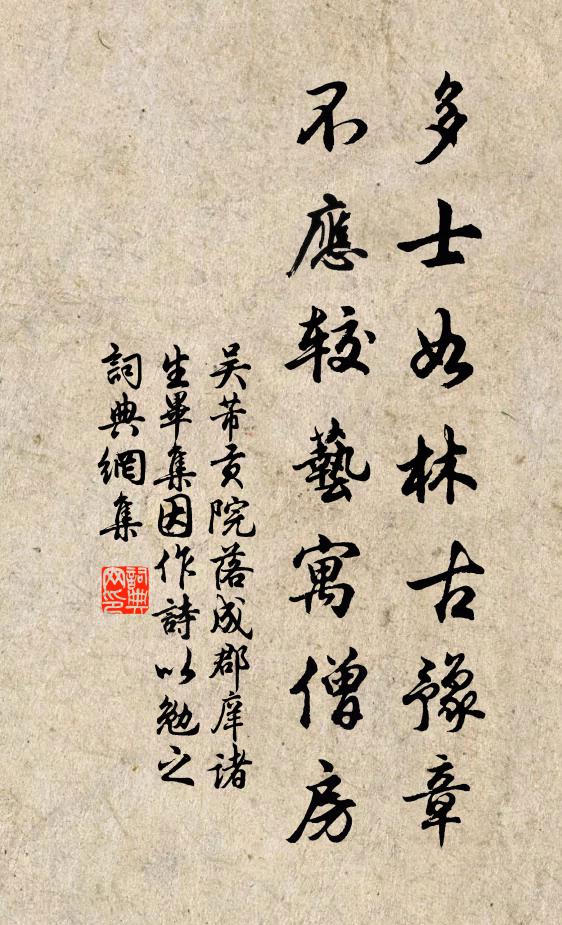 多士如林古豫章
不應较藝寓僧房
吴芾贡院落成郡庠诸
生畢集因作詩以勉之
詞典網集
詞典网印